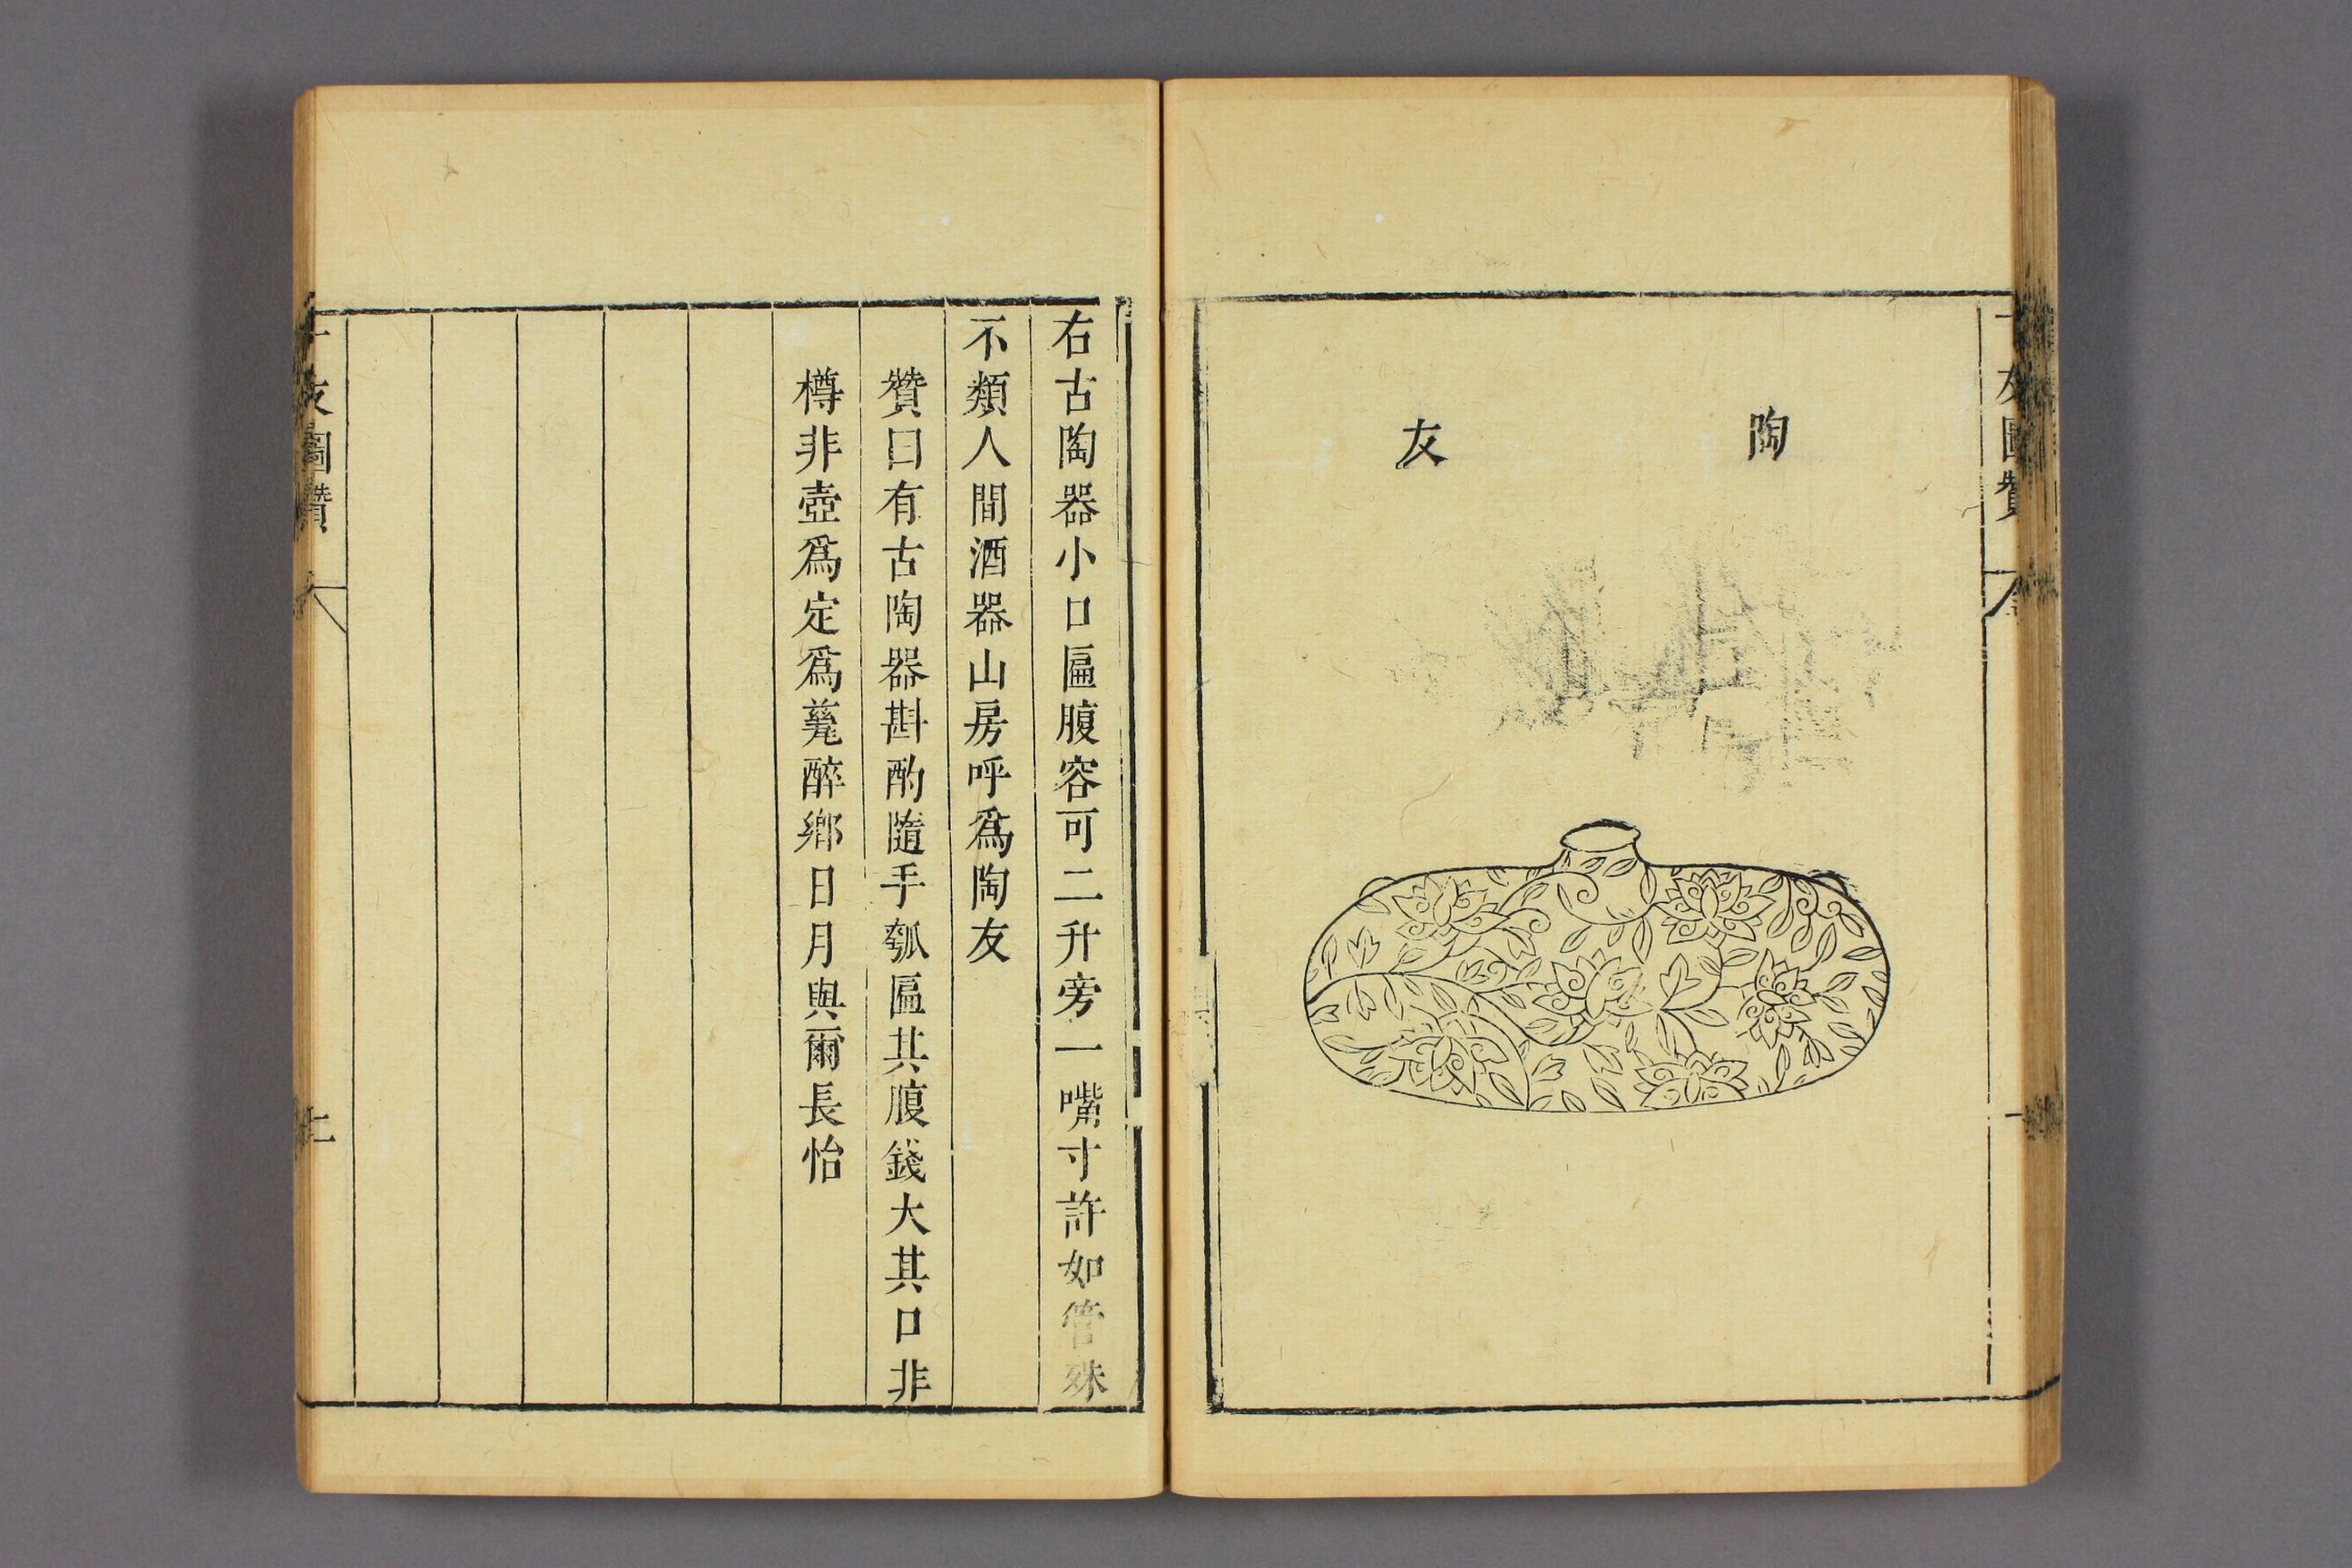 友圖贊
陶友
右古陶器小口匾腹容可二升旁一嘴寸許如管殊
不類人間酒器山房呼爲陶友
贊曰有古陶器斟酌隨手瓠匾其腹錢大其口非
樽非壺爲定爲醉鄉日月與爾長怡
友圖贊